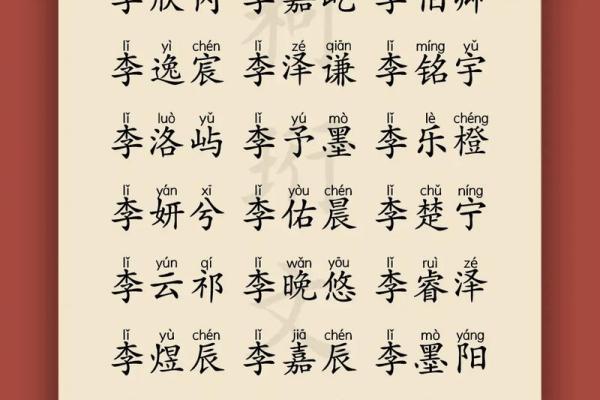 lǐ yì chén lǐ zé qiān lǐ míng yǔ
李逸宸 李泽谦 李铭宇
lǐ luò yǔ lǐ yú mò lǐ lè chéng
李洛屿 李予墨 李乐橙
lǐ yán xī lǐ yòu chén lǐ chǔ níng
李妍兮 李佑晨 李楚宁
lǐ yún qí lǐ wǎn yōu lǐ ruì zé
李云祁 李晚悠 李睿泽
lǐ yù chén lǐ jiā chén lǐ mò yáng
李煜辰 李嘉辰 李墨阳